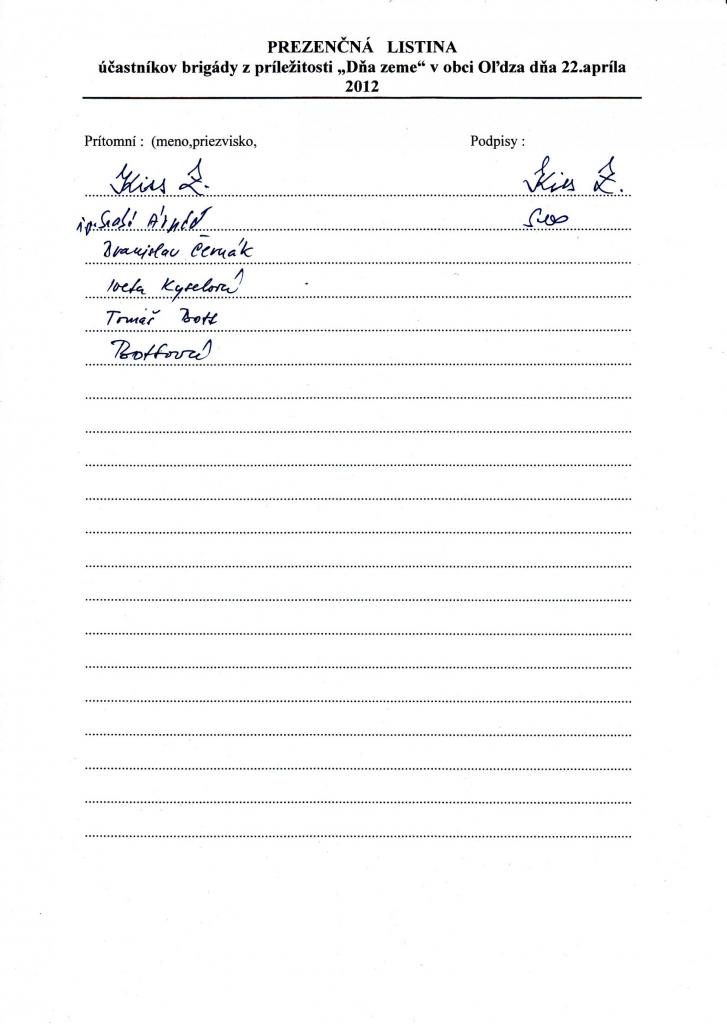 PREZENČNÁ LISTINA
účastníkov brigády z príležitosti „Dňa zeme“ v obci Oľdza dňa 22.apríla
2012
Prítomní : (meno,priezvisko, Podpisy :
Kiss Z. Kiss Z.
Branislav Černák
Iveta Kyselová
Tomáš Bott
Bottová